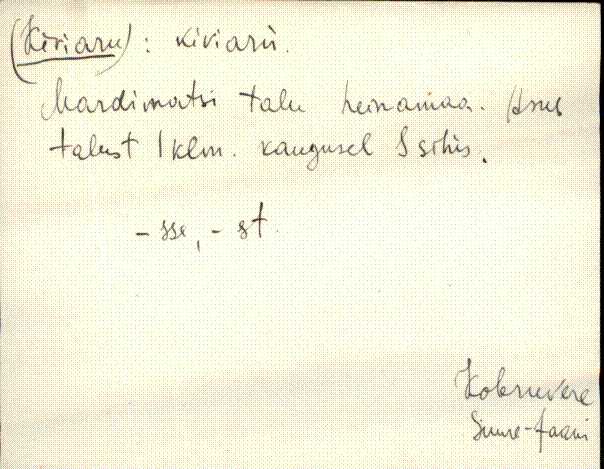 (Kiviaru): kiviarù.
Mardimatsi talu heinamaa. Asus
talust 1 klm. kaugusel S sihis.
- sse, - st.
Kobruvere
Suure-Jaani